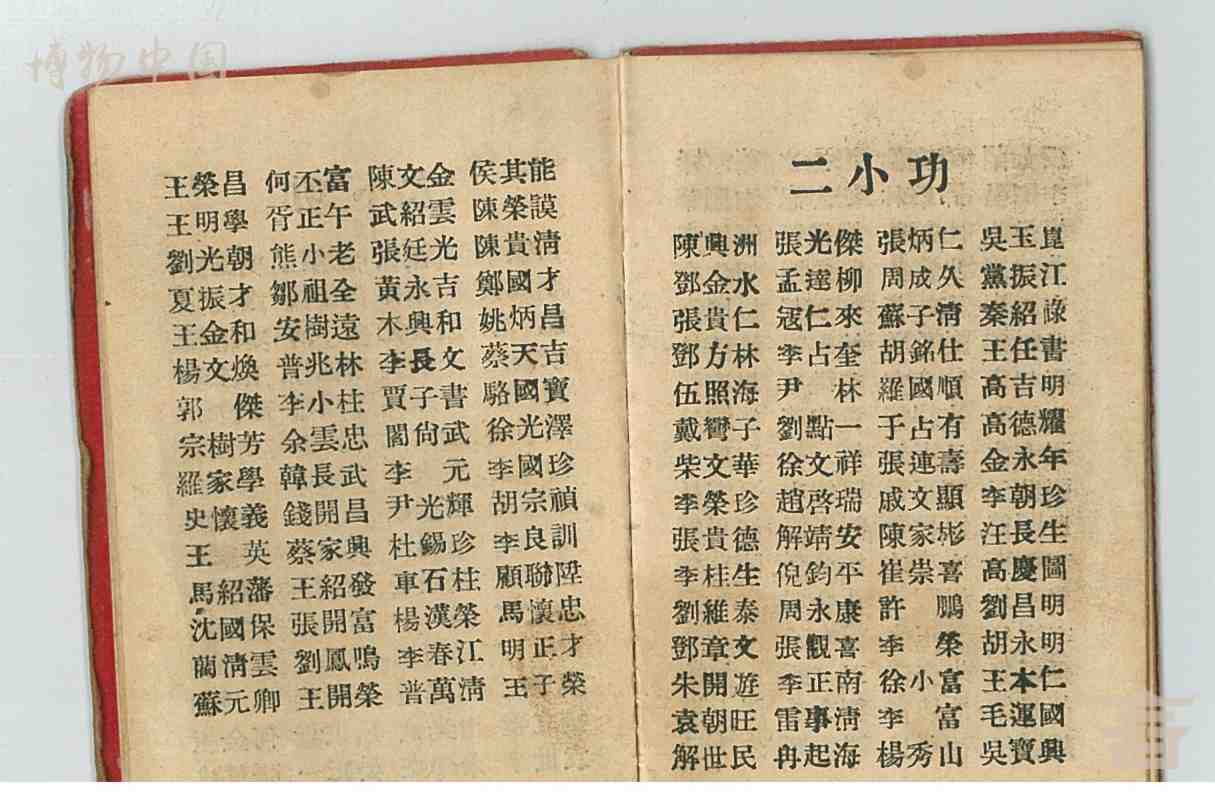 博物中国
王榮昌 何丕富 陳文金 侯其能
王明學 胥正午 武紹雲 陳榮謨
劉光朝 熊小老 張廷光 陳貴淸
夏振才 鄒祖全 黃永吉 鄭國才
王金和 安樹遠 木興和 姚炳昌
楊文煥 普兆林 李長文 蔡天吉
郭 傑 李小桂 賈子書 駱國寶
宗樹芳 余雲忠 閻尙武 徐光澤
羅家學 韓長武 李 元 李國珍
史懷義 錢開昌 尹光輝 胡宗禎
王 英 蔡家興 杜錫珍 李良訓
馬紹藩 王紹發 車石柱 顧聯陞
沈國保 張開富 楊漢榮 馬懷忠
藺淸雲 劉鳳鳴 李春江 明正才
蘇元卿 王開榮 普萬淸 王子榮
二小功
陳興洲 張光傑 張炳仁 吳玉崑
鄧金水 孟達柳 周成久 黨振江
張貴仁 冦仁來 蘇子淸 秦紹祿
鄧方林 李占奎 胡銘仕 王任書
伍照海 尹 林 羅國順 高吉明
戴彎子 劉點一 于占有 高德耀
柴文華 徐文祥 張連壽 金永年
李榮珍 趙啓瑞 戚文顯 李朝珍
張貴德 解靖安 陳家彬 汪長生
李桂生 倪鈞平 崔崇喜 高慶圖
劉維泰 周永康 許 鵬 劉昌明
鄧章文 張觀喜 李 榮 胡永明
朱開遊 李正南 徐小富 王本仁
袁朝旺 雷事淸 李 富 毛運國
解世民 冉起海 楊秀山 吳寶興